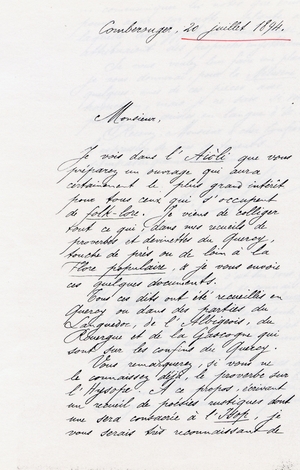 Comberouger, 20 juillet 1894.
Monsieur.
Je vois dans l'Aiòli que vous
préparez un ouvrage qui aura
certainement le plus grand intérêt
pour tous ceux qui s'occupent
de folk-lore. Je viens de colliger
tout ce qui, dans mes recueils de
proverbes et devinettes du Quercy,
touche de près ou de loin à la
Flore populaire, & je vous envoie
ces quelques documents.
Tous ces dits ont été recueillies en
Quercy ou dans des parties du
Languedoc, de l'Albigeois, du
Rouergue et de la Gascogne qui
sont sur les confins du Quercy.
Vous remarquerez, si vous ne
le connaissez déjà, le proverbe sur
l'Hysope. A ce propos, écrivant
un recueil de poésies rustiques dont
une sera consacrée à l'Isop, je
vous serais très reconnaissant de